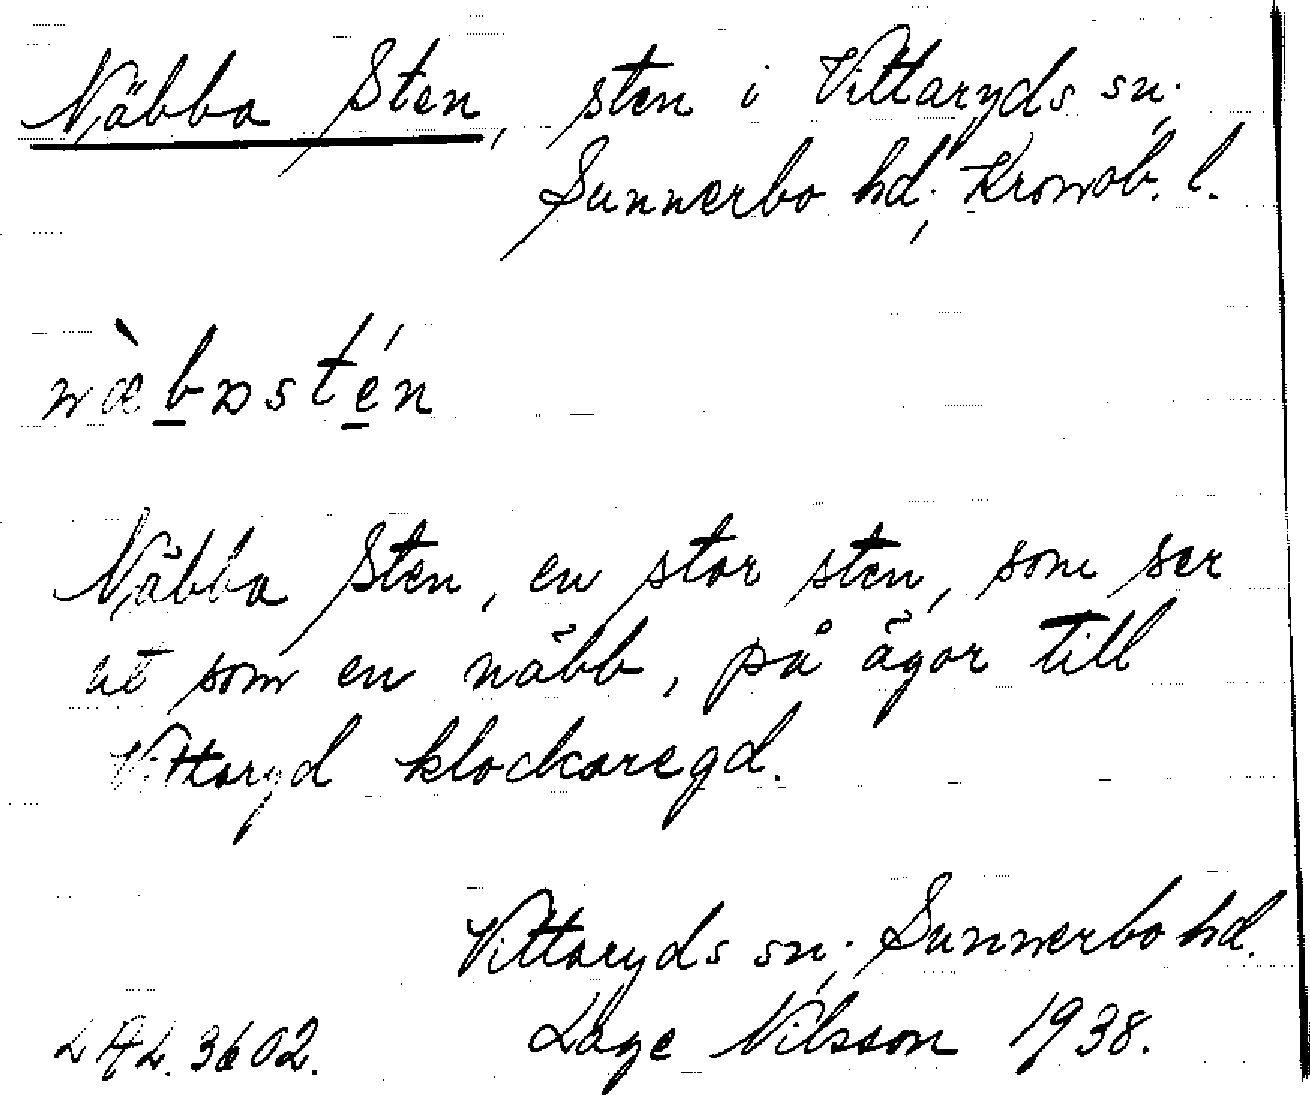 Näbba Sten, sten i Vittaryds sn.,
Sunnerbo hd., Kronob. l.
næ̀bɔsté́n
Näbba Sten, en stor sten, som ser
ut som en näbb, på ägor till
Vittaryd klockaregd.
Vittaryds sn., Sunnerbo hd.
LAL. 3602. Lage Nilsson 1938.